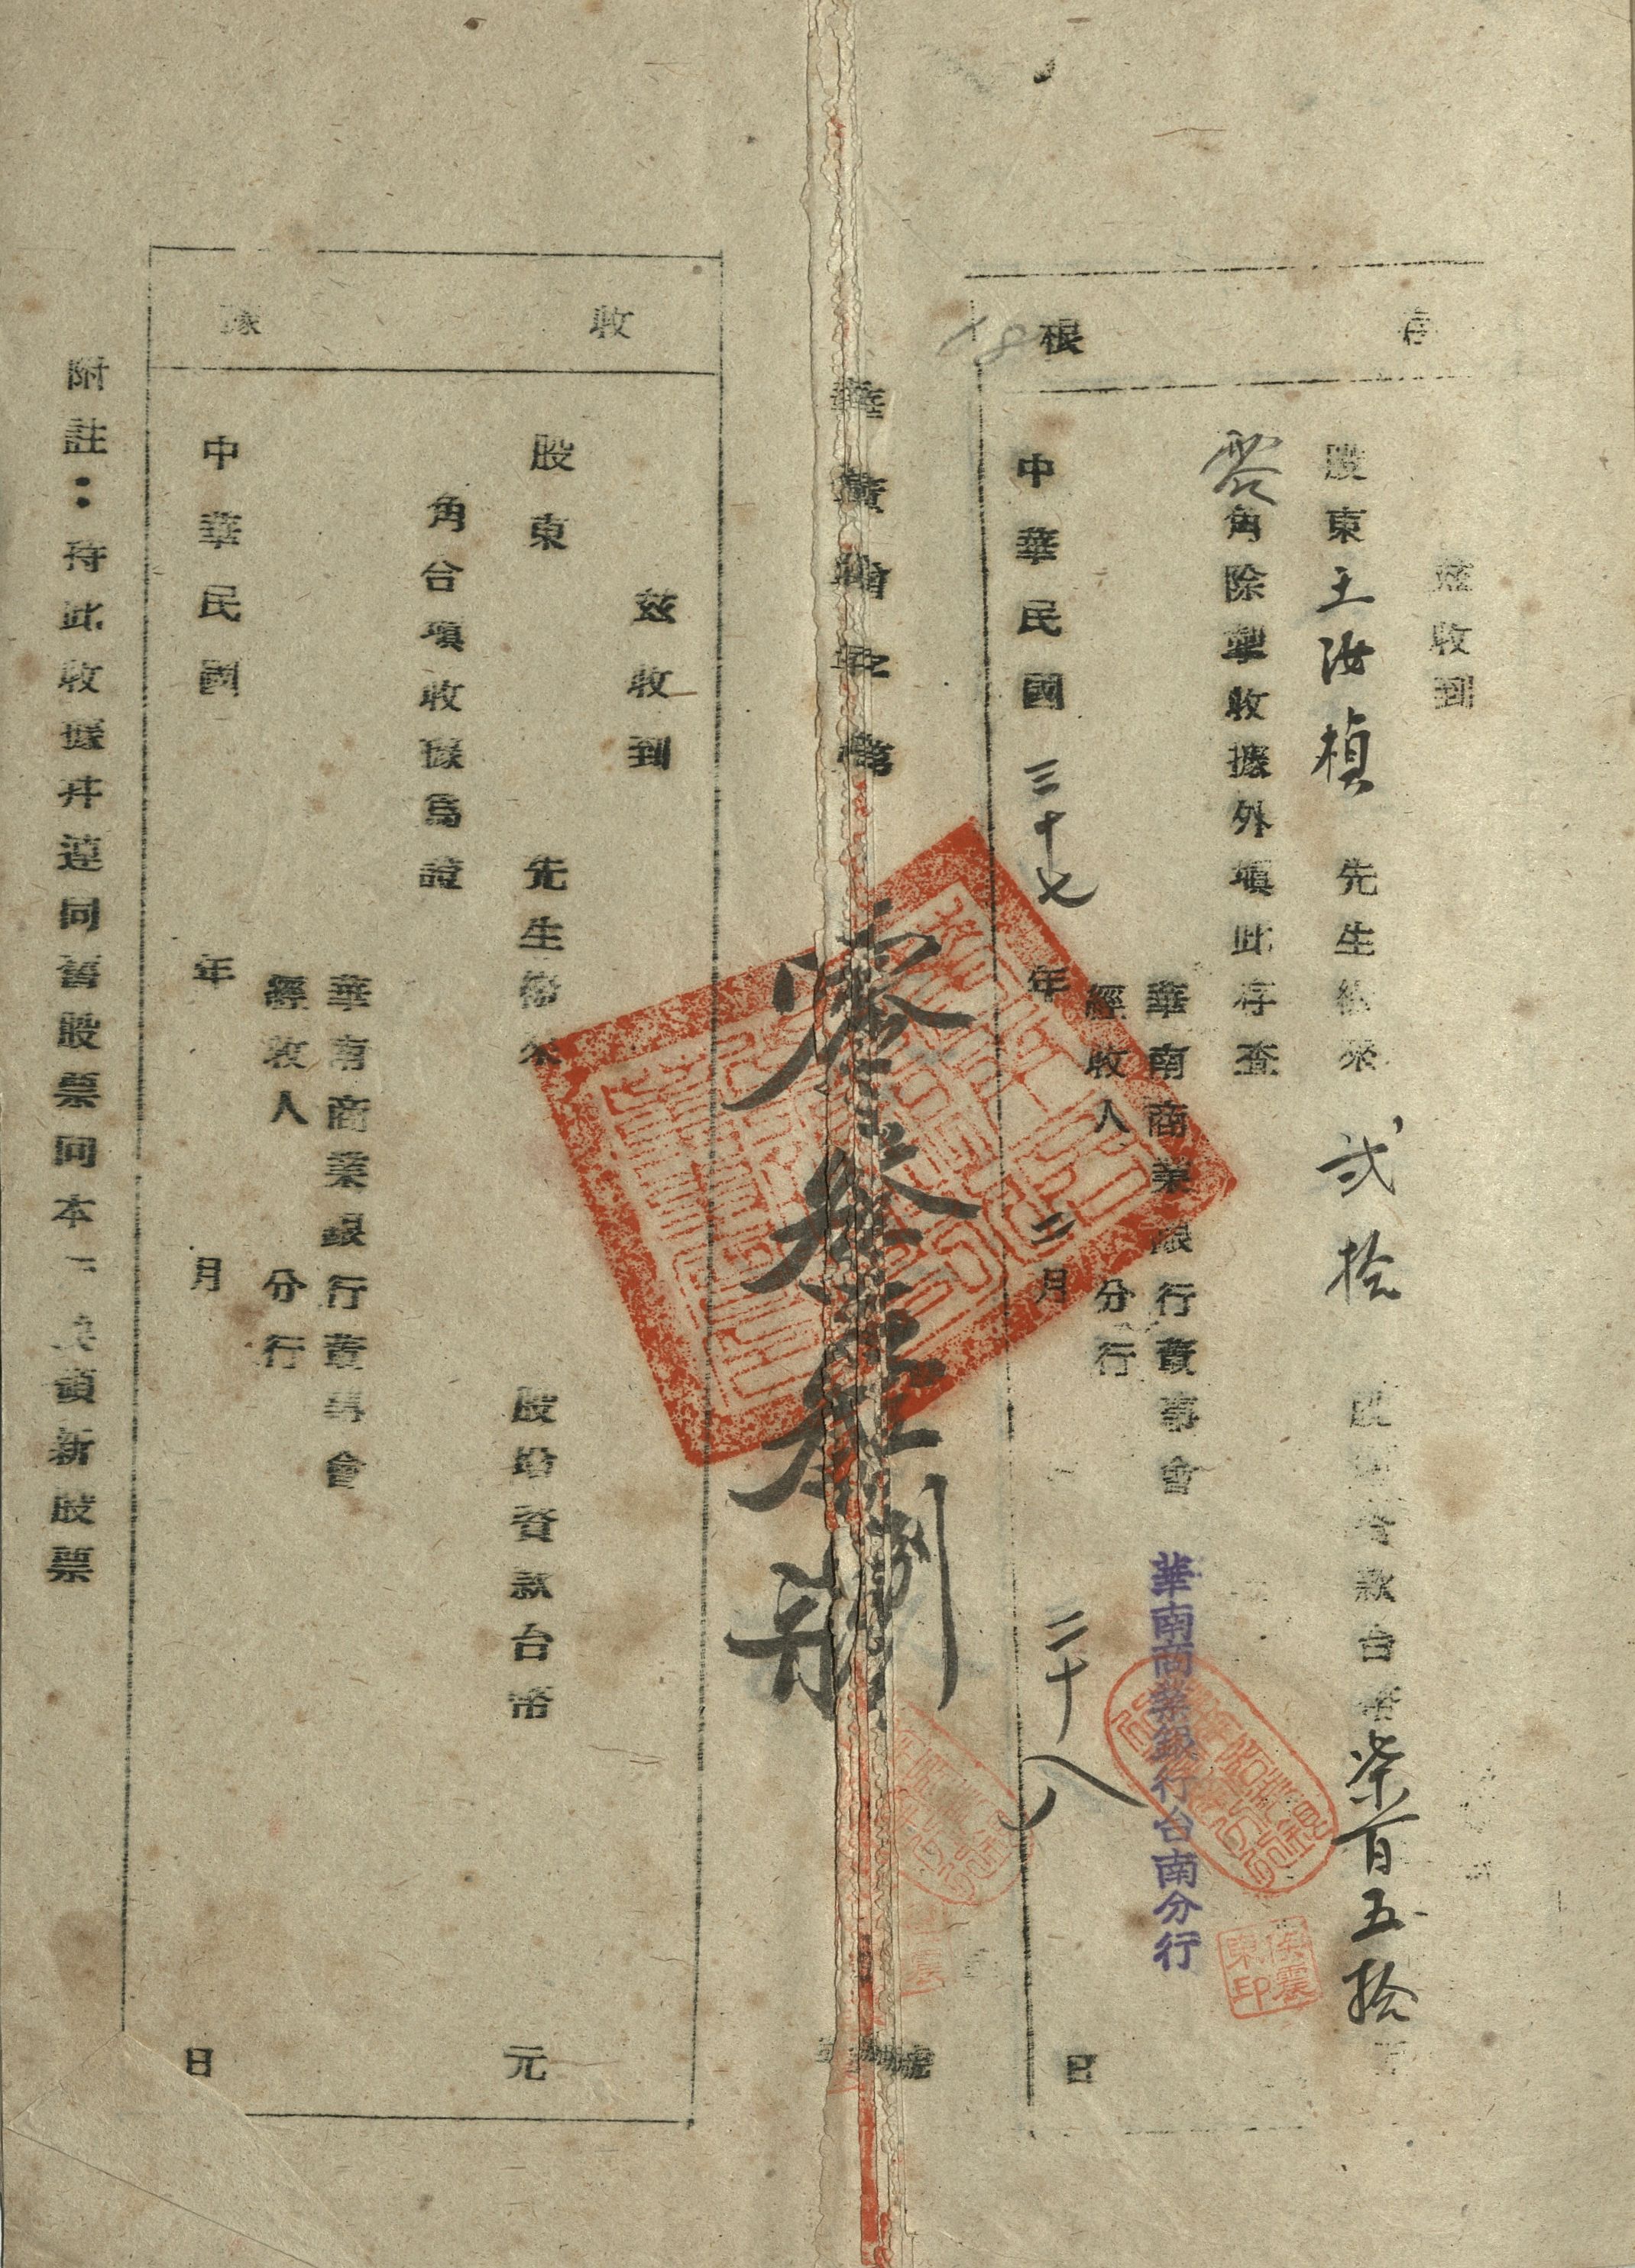 存根
茲收到
股東王汝楨先生繳來貳拾股增資款台幣柒百五拾元
零角除掣收據外填此存查
華南商業銀行董事會
華南商業銀行台南分行
經收人 分行
中華民國三十七年二月二十八日
收據
茲收到
股東 先生繳來 股增資款台幣 元
角合填收據為證
華南商業銀行董事會
經收人 分行
中華民國 年 月 日
附註：持此收據并連同舊股票向本行換領新股票